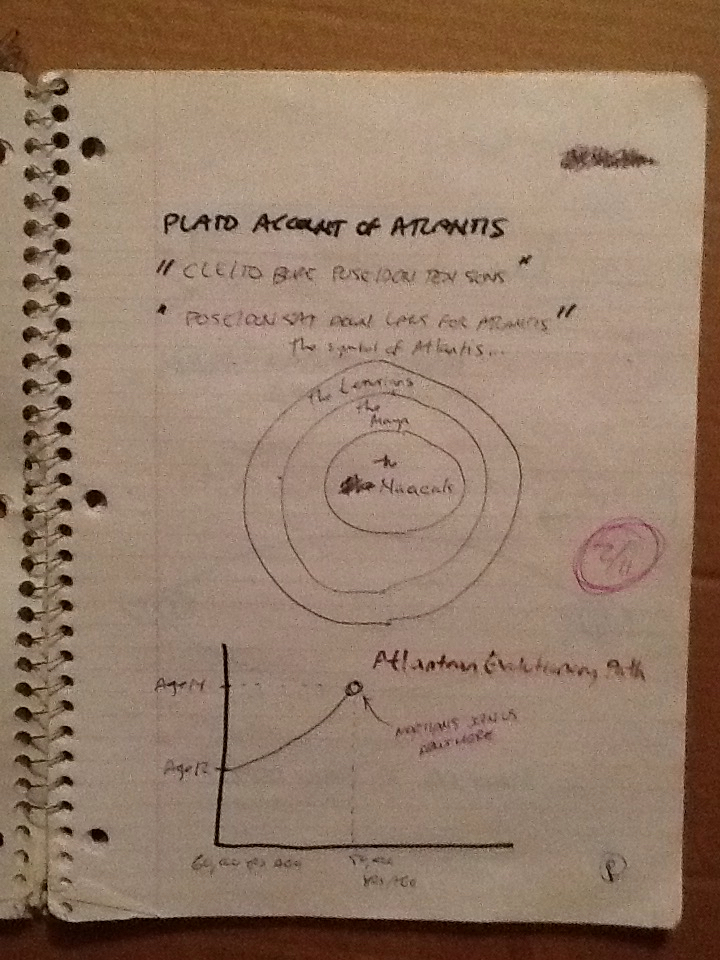 PLATO ACCOUNT OF ATLANTIS
" CLEITO BORE POSEIDON TEN SONS "
" POSEIDON SAT DOWN LAWS FOR ATLANTIS "
the symbol of Atlantis...
The Lemurians
the
Maya
the
Naacals
Atlantean Evolutionary Path
Age 14
MARTIANS JOIN US
Age 12
60,000 yrs AGO
yrs AGO